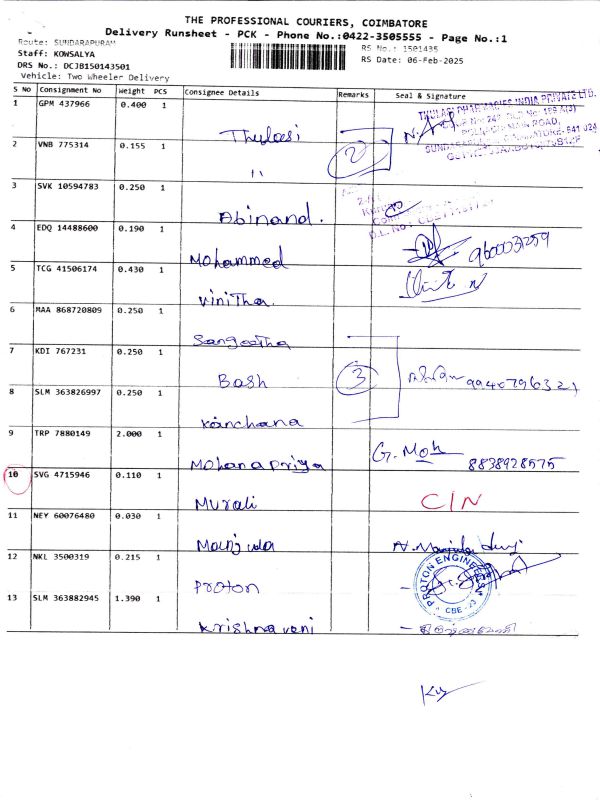 THE PROFESSIONAL COURIERS, COIMBATORE
Delivery Runsheet - PCK - Phone No.:0422-3505555 - Page No.:1
Route: SUNDARAPURAM
RS No.: 1501435
Staff: KOWSALYA
RS Date: 06-Feb-2025
DRS No.: DCJB150143501
Vehicle: Two Wheeler Delivery
S No Consignment No Weight PCS Consignee Details Remarks Seal & Signature
1 GPM 437966 0.400 1 Thulasi
2 VNB 775314 0.155 1 "
2
3 SVK 10594783 0.250 1 Abinand.
4 EDQ 14488600 0.190 1 Mohammed 9600031259
5 TCG 41506174 0.430 1 Vinitha
6 MAA 868720809 0.250 1 Sangeetha
7 KDI 767231 0.250 1 Bash
3
8 SLM 363826997 0.250 1 Kanchana
9 TRP 7880149 2.000 1 Mohanapriya G. Moh 8838928575
10 SVG 4715946 0.110 1 Murali C/N
11 NEY 60076480 0.030 1 Manjula
12 NKL 3500319 0.215 1 Proton
PROTON ENGINEERS
CBE
13 SLM 363882945 1.390 1 Krishnaveni